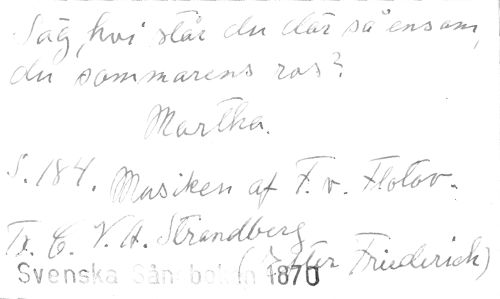 Säg, hvi står du där så ensam,
du sommarens ros?
Martha.
S. 184. Musiken af F. v. Flotow.
Tx. C. V. A. Strandberg
(Efter Friederich)
Svenska Sån boken 1870